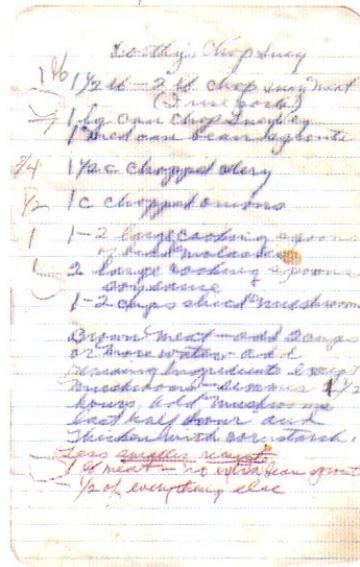 Dorothy's Chop Suey
1 lb 1 1/2 lb - 2 lb chop suey meat
(I use pork)
1 lg can chop suey veg
1 med can bean sprouts
3/4 1 1/2 c chopped celery
1/2 1 c chopped onions
1 1-2 large cooking spoons
of bead molasses
1 2 large cooking spoons
soy sauce
1-2 cups sliced mushrooms
Brown meat - add 2 cups
or more water - add
remaining ingredients except
mushrooms - simmer 1 1/2
hours, add mushrooms
last half hour and
thicken with cornstarch.
Less smaller recipe
1 lb meat - no extra bean sprouts
- 1/2 of everything else